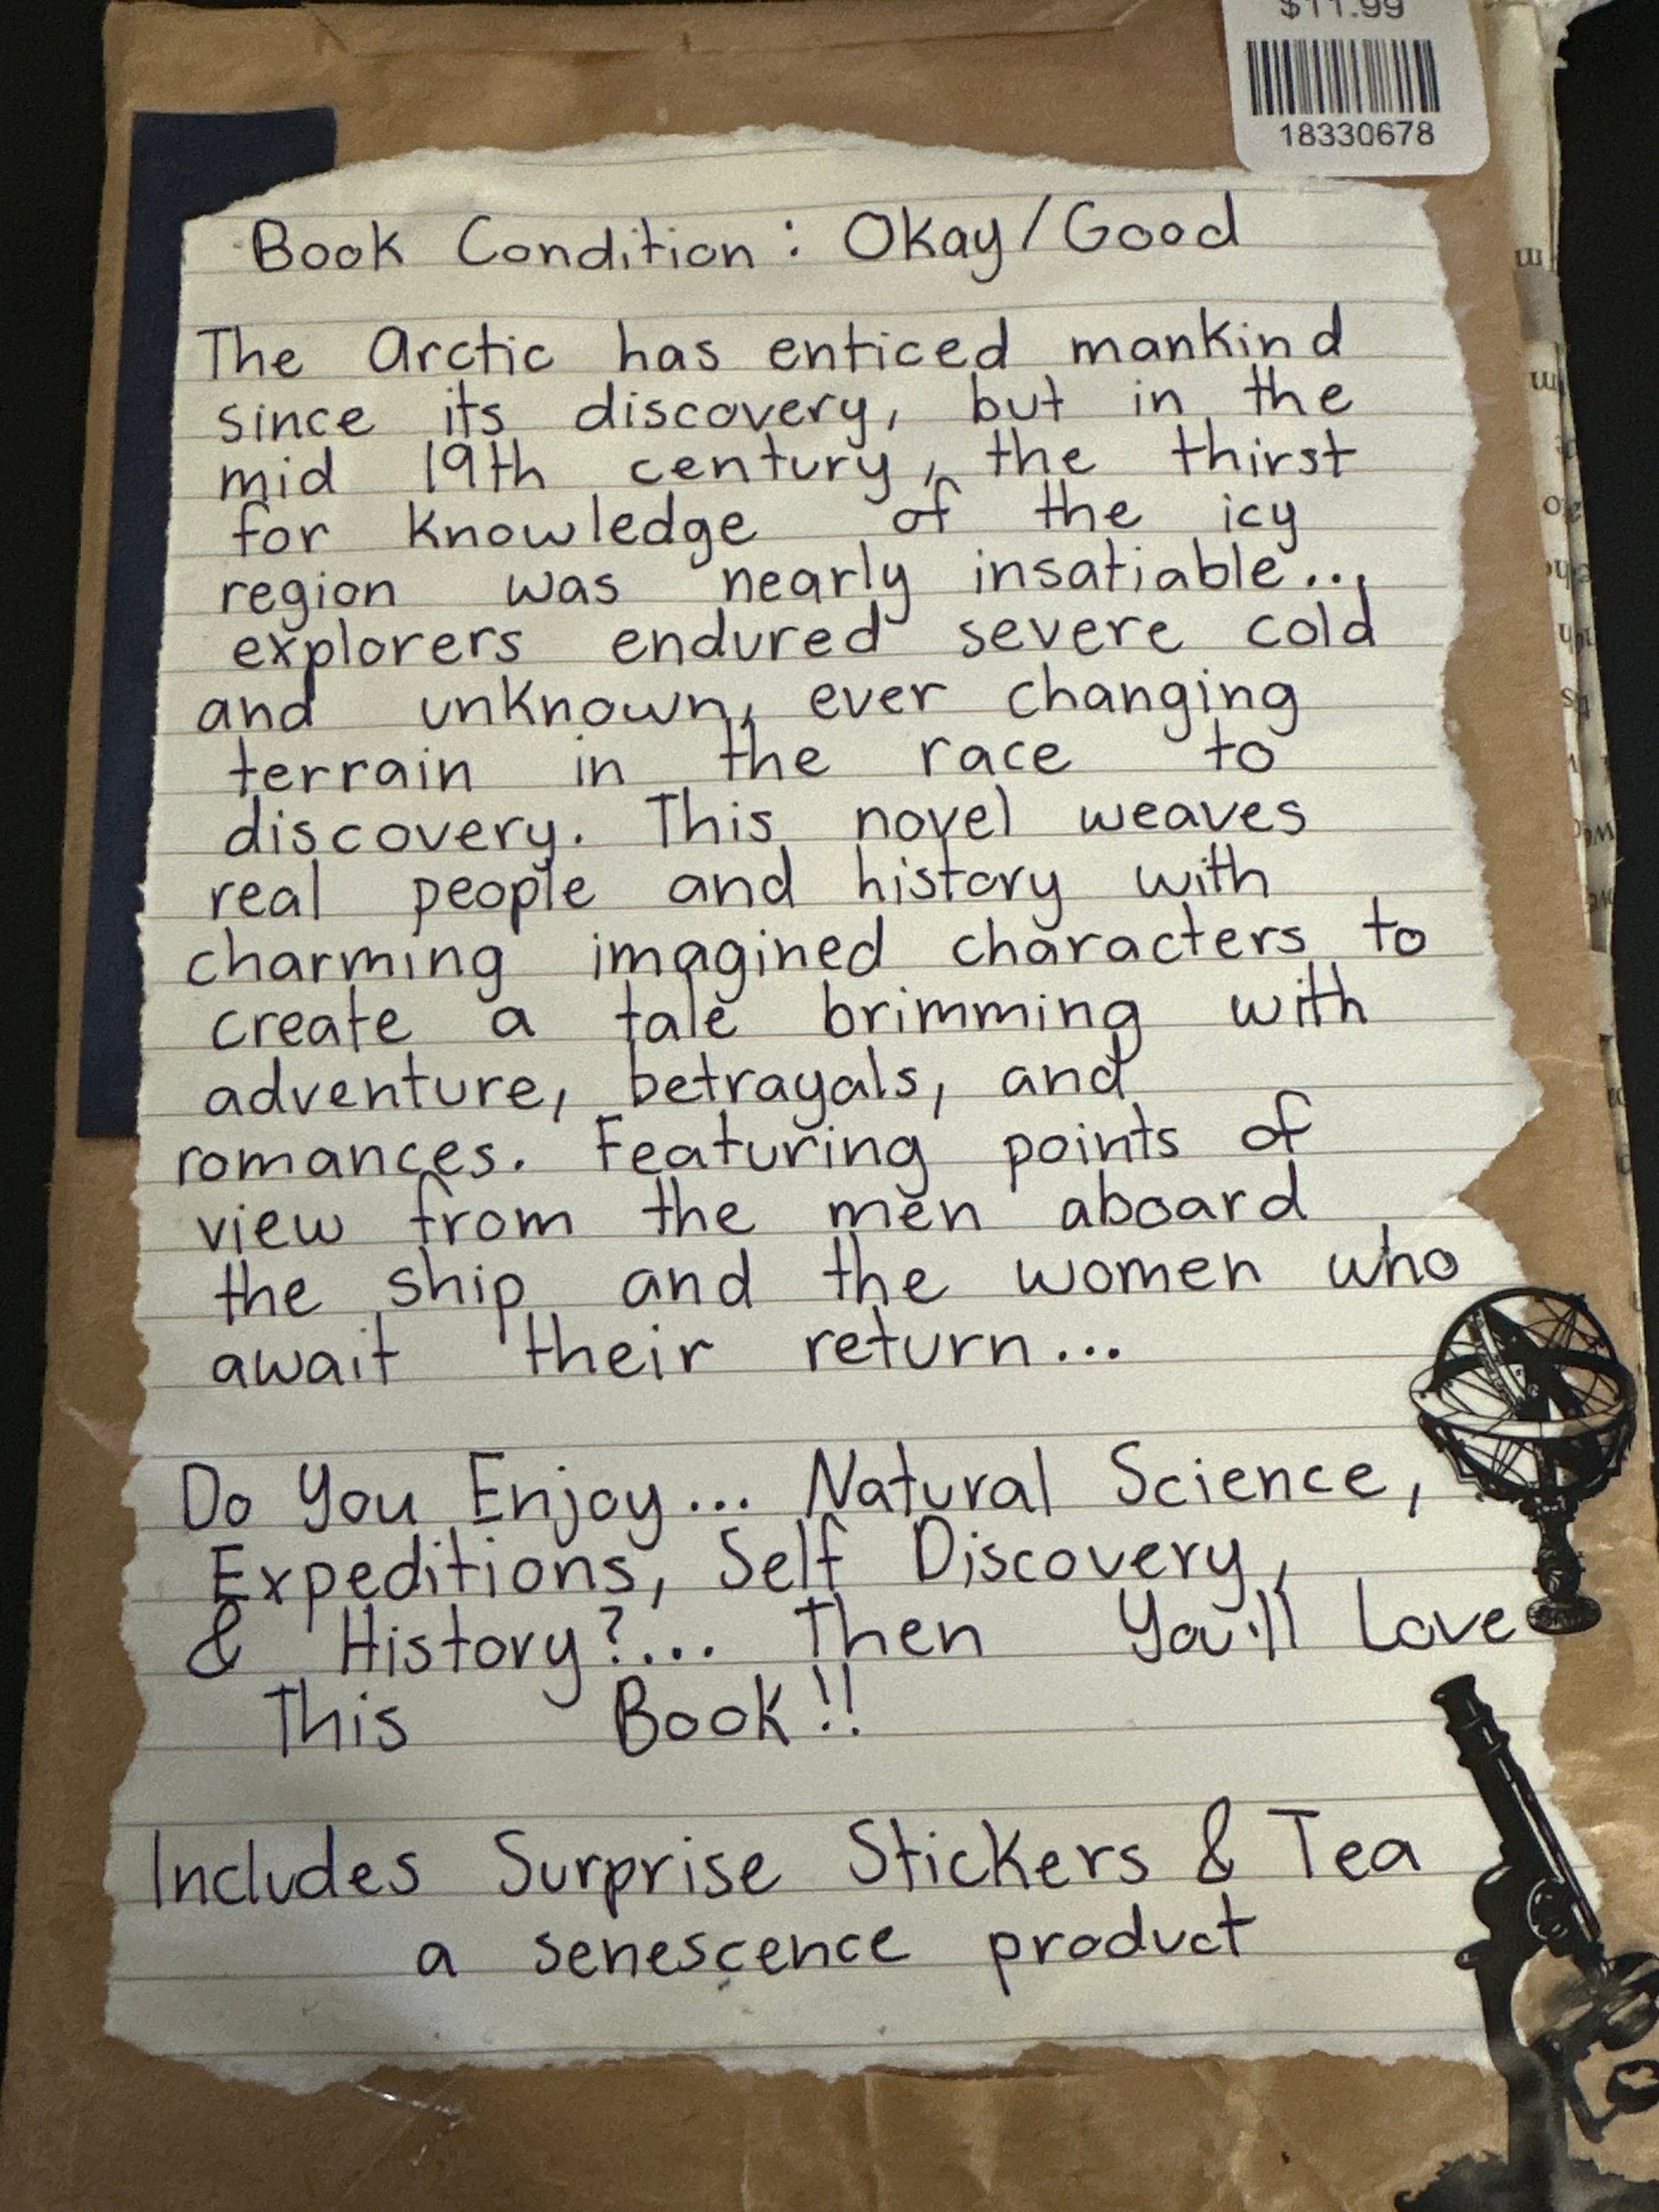 $11.99
18330678
Book Condition: Okay/Good
The Arctic has enticed mankind
since its discovery, but in the
mid 19th century, the thirst
for knowledge of the icy
region was nearly insatiable...
explorers endured severe cold
and unknown, ever changing
terrain in the race to
discovery. This novel weaves
real people and history with
charming imagined characters to
create a tale brimming with
adventure, betrayals, and
romances. Featuring points of
view from the men aboard
the ship and the women who
await their return...
Do You Enjoy... Natural Science,
Expeditions, Self Discovery,
& History?... Then You'll Love
This Book!!
Includes Surprise Stickers & Tea
a senescence product